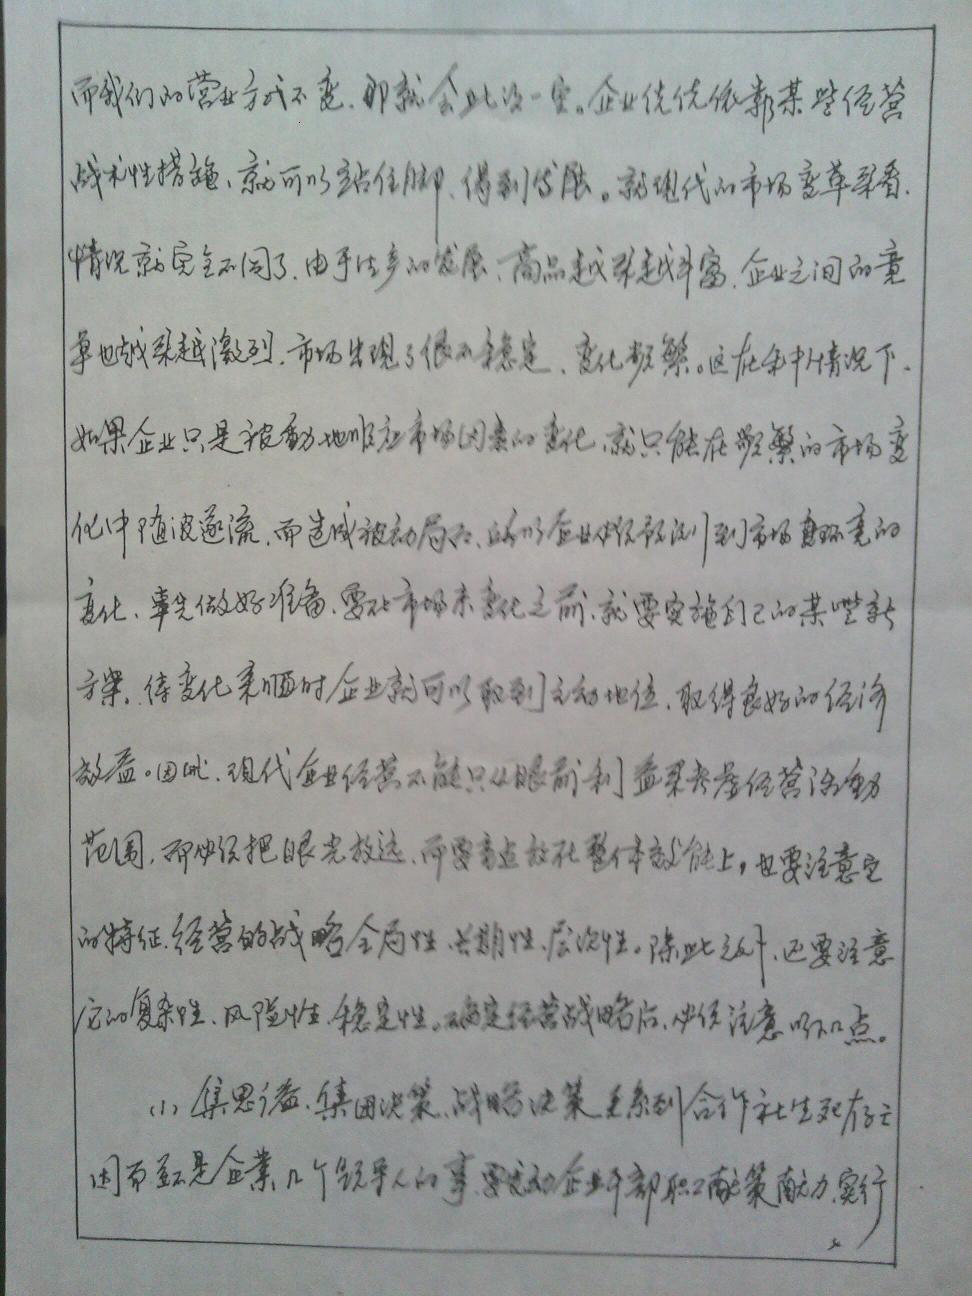 而我们的营业方式不变、那就会此次一定。企业优优依靠某些经营
战术性措施、就可以站住脚、得到发展。就现代的市场变革来看、
情况就完全不同了、由于生产的发展、商品越来越丰富、企业之间的竟
争也越来越激烈、市场出现了很不稳定、变化频繁。这在条中情况下、
如果企业只是被動地顺应市场因素的变化、就只能在频繁的市场变
化中随波逐流、而造成被动局面、所以企业必须预测到市场环境的
变化、率先做好准备、要在市场未变化之前、就要实施自己的某些新
方案、待变化来临时企业就可以取到主动地位、取得良好的经济
效益。因此、现代企业经营不能只从眼前利益来考虑经营活動
范围、而必须把眼光放远、而要着点放在整体效能上，也要注意它
的特征、经营的战略全局性、长期性、层次性。除此之外、还要注意
它的复杂性、风险性、稳定性。确定经营战略后、必须注意以下几点。
(1) 集思广益、集团决策、战略决策关系到合作社生死存亡
因而并不是企業几个领导人的事、要发动企业干部职工献策献力、实行